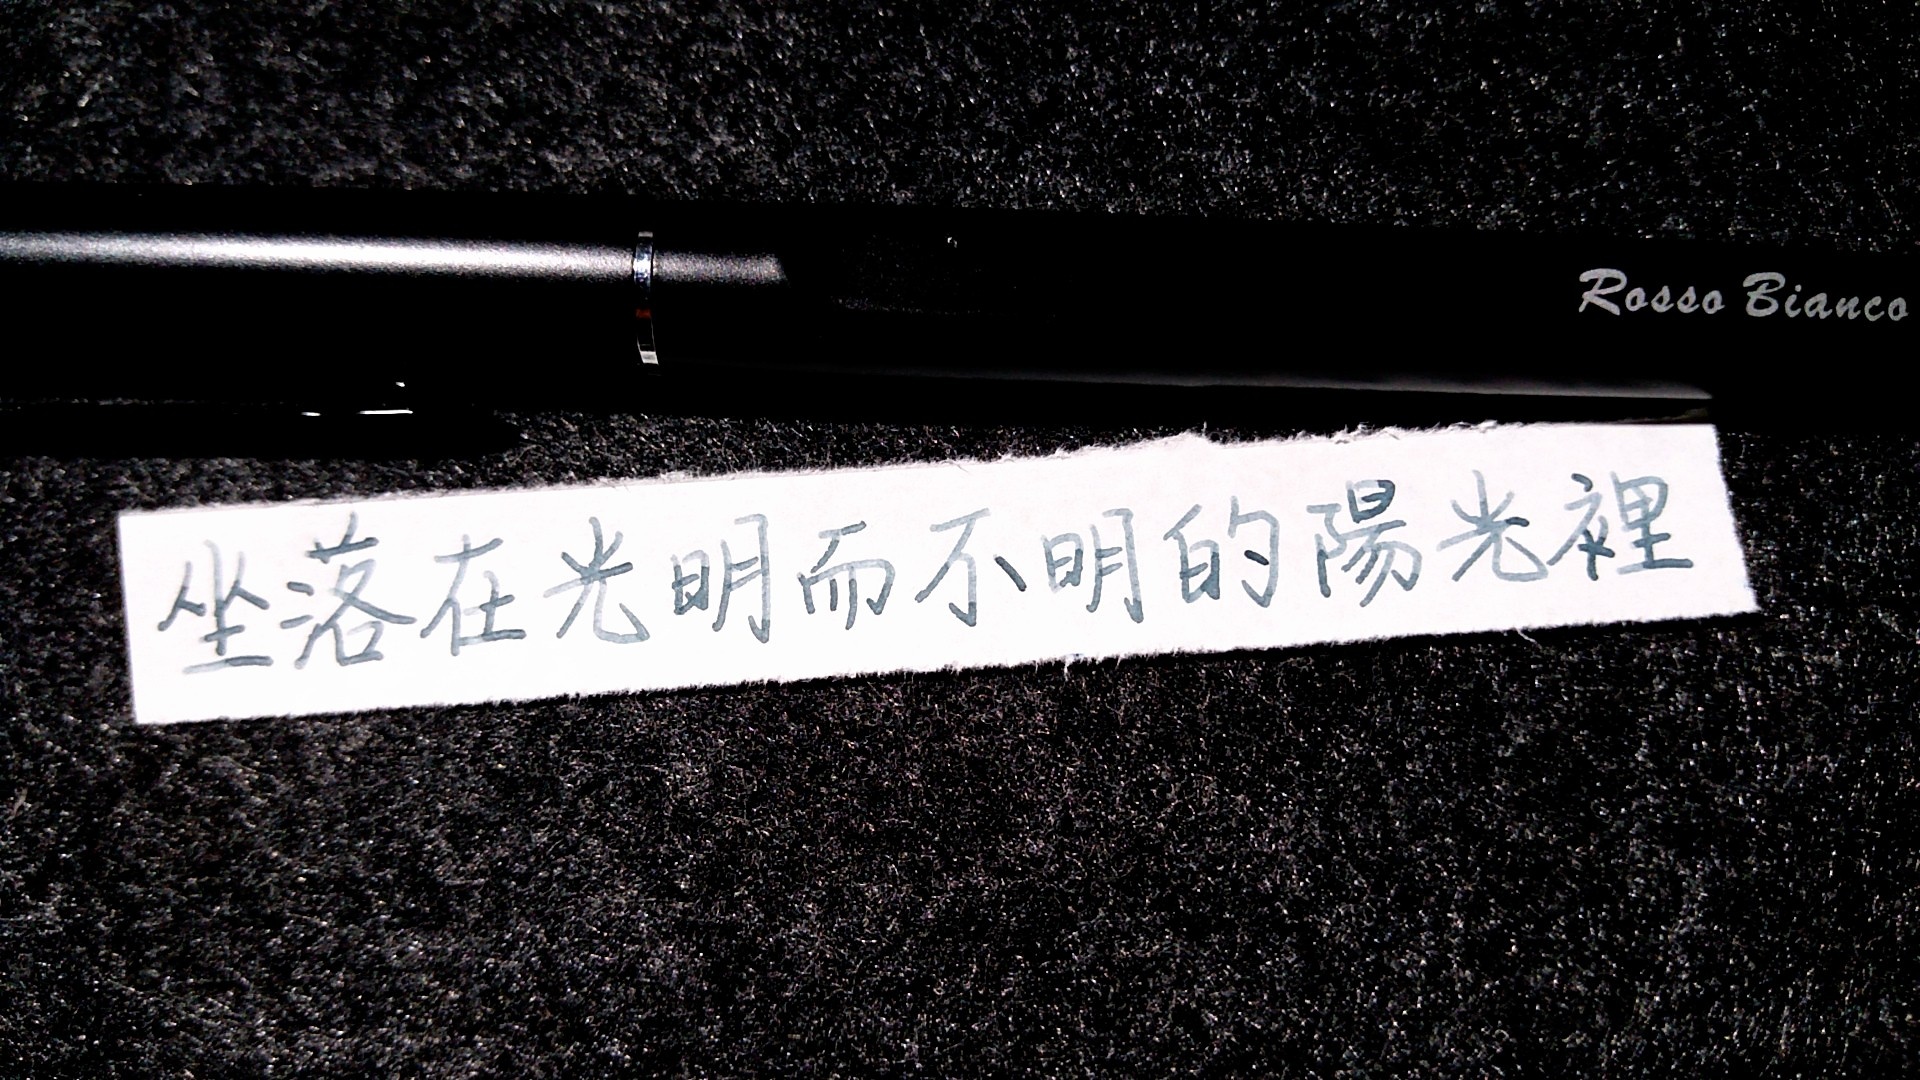 Rosso Bianco
坐落在光明而不明的陽光裡